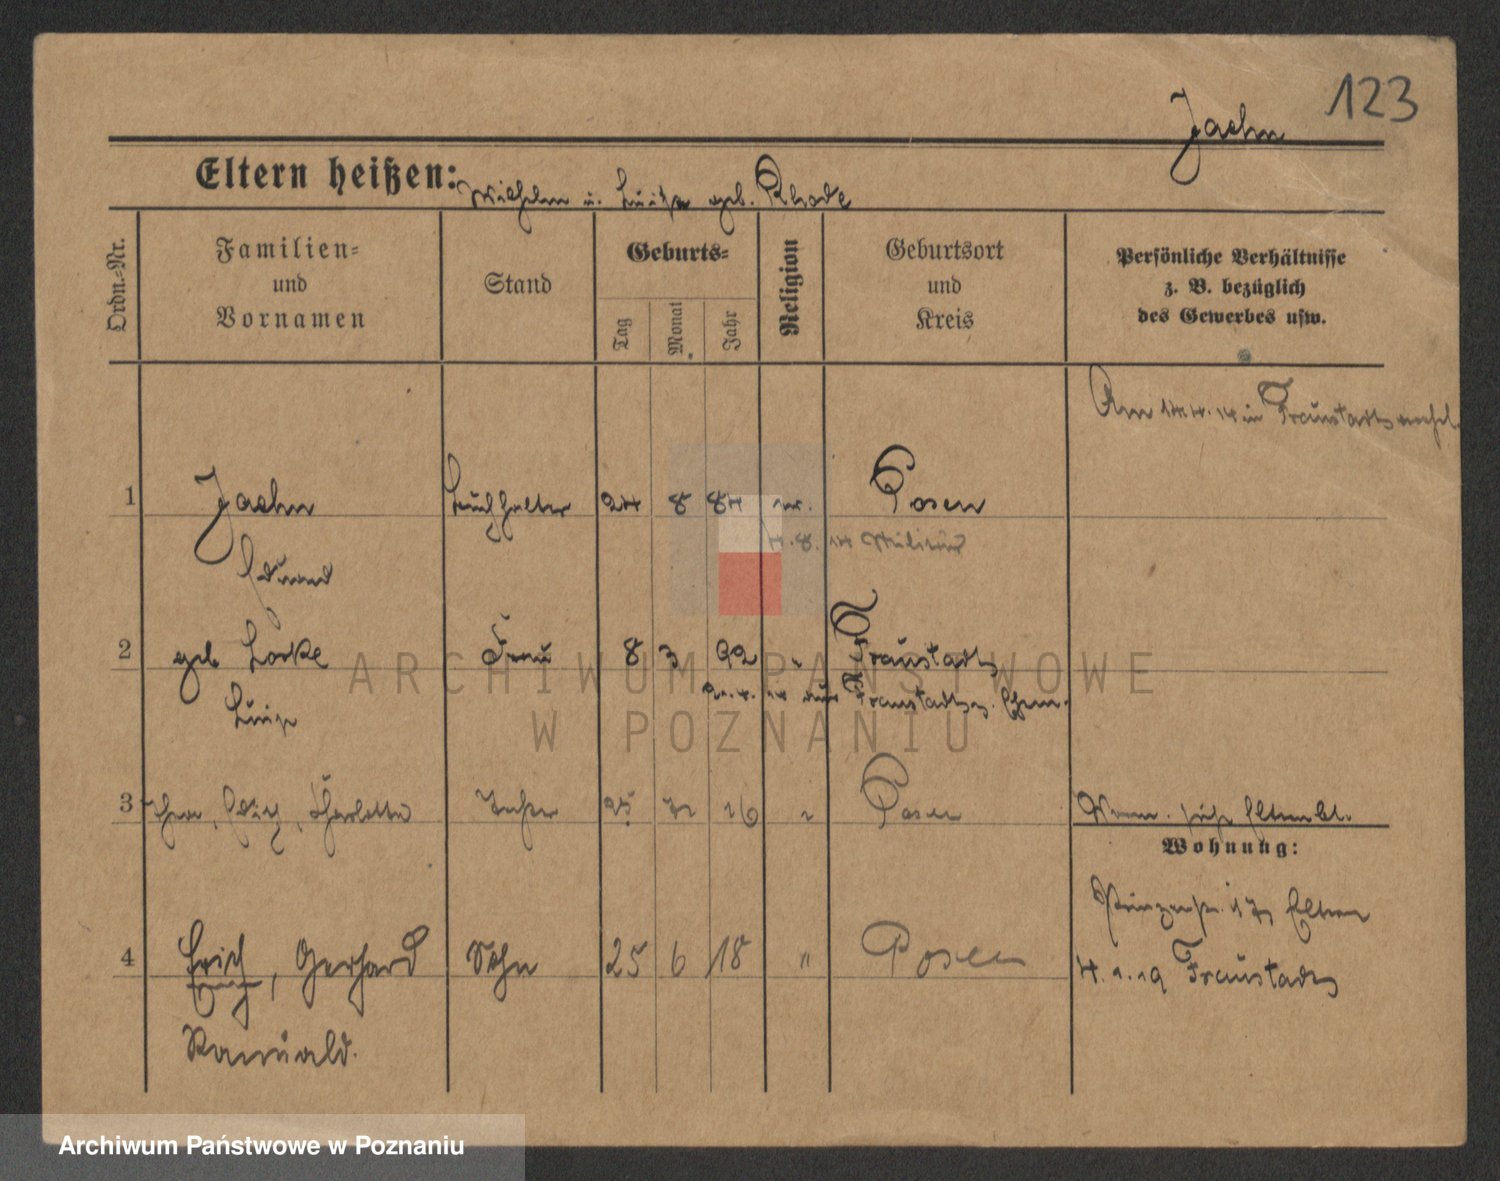 123
Jaehn
Eltern heißen: Wilhelm u. Luise geb. Rhode
Ordn.-Nr.
Familien-
und
Vornamen
Stand
Geburts-
Tag
Monat
Jahr
Religion
Geburtsort
und
Kreis
Persönliche Verhältnisse
z. B. bezüglich
des Gewerbes usw.
Am in Fraustadt
1 Jaehn Buchhalter 24 8 84 ev. Posen
4.8.14 Militär
Eduard
2 geb Lorke Frau 8 3 92 " Fraustadt
14 aus Fraustadt z. Ehem.
Luise
3 Edith, Charlotte Tochter 25 16 " Posen
Wohnung:
4 Erich, Gerhard Sohn 25 6 18 " Posen
Eltern
4.1.19 Fraustadt
Erich
ARCHIWUM PAŃSTWOWE
W POZNANIU
Archiwum Państwowe w Poznaniu